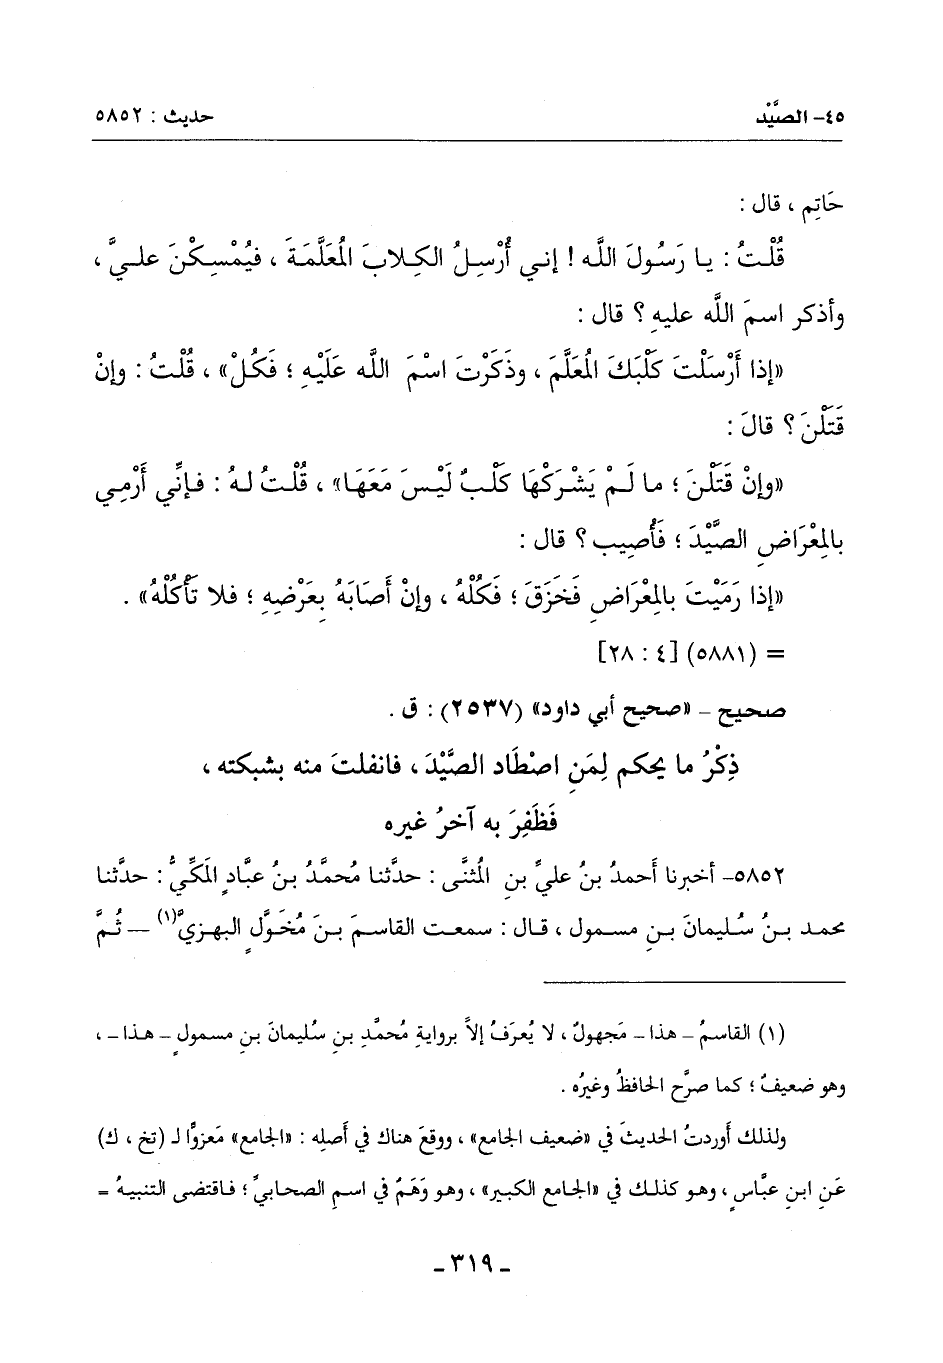 ٤٥- الصَّيْد
حديث : ٥٨٥٢
حَاتِم ، قال :
قُلْتُ : يا رَسُولَ اللَّه ! إني أُرْسِلُ الكِلابَ المُعَلَّمَةَ ، فيُمْسِكْنَ عليَّ ،
وأذكر اسمَ اللَّه عليهِ ؟ قال :
«إذا أَرْسَلْتَ كَلْبَكَ المُعَلَّمَ ، وذَكَرْتَ اسْمَ اللَّه عَلَيْهِ ؛ فَكُلْ» ، قُلْتُ : وإنْ
قَتَلْنَ ؟ قالَ :
«وإنْ قَتَلْنَ ؛ ما لَمْ يَشْرَكْهَا كَلْبٌ لَيْسَ مَعَهَا» ، قُلْتُ لهُ : فإنِّي أَرْمِي
بالمِعْرَاضِ الصَّيْدَ ؛ فَأُصِيب ؟ قال :
«إذا رَمَيْتَ بالمِعْرَاضِ فَخَزَقَ ؛ فَكُلْهُ ، وإنْ أَصَابَهُ بِعَرْضِهِ ؛ فلا تَأْكُلْهُ» .
= (٥٨٨١) [٤ : ٢٨]
صحيح – «صحيح أبي داود» (٢٥٣٧) : ق .
ذِكْرُ ما يحكم لِمَنِ اصْطَاد الصَّيْدَ ، فانفلتَ منه بشبكته ،
فَظَفِرَ به آخرُ غيره
٥٨٥٢- أخبرنا أحمدُ بنُ عليِّ بنِ المُثنَّى : حدَّثنا محمَّدُ بنُ عبَّادٍ المَكِّيُّ : حدَّثنا
محمد بنُ سُليمانَ بنِ مسمول ، قال : سمعت القاسمَ بنَ مُخَوَّلٍ البهزيَّ(١) – ثُمَّ
(١) القاسمُ – هذا – مَجهولٌ ، لا يُعرَفُ إلاَّ بروايةِ مُحمَّدِ بنِ سُليمانَ بنِ مسمولٍ – هذا – ،
وهو ضعيفٌ ؛ كما صرَّح الحافظُ وغيرُه .
ولذلك أوردتُ الحديثَ في «ضعيف الجامع» ، ووقعَ هناك في أصلِه : «الجامع» مَعزوًّا لـ (تخ ، ك)
عَنِ ابنِ عبَّاسٍ ، وهو كذلك في «الجامع الكبير» ، وهو وَهَمٌ في اسمِ الصحابيِّ ؛ فاقتضى التنبيهُ =
– ٣١٩ –